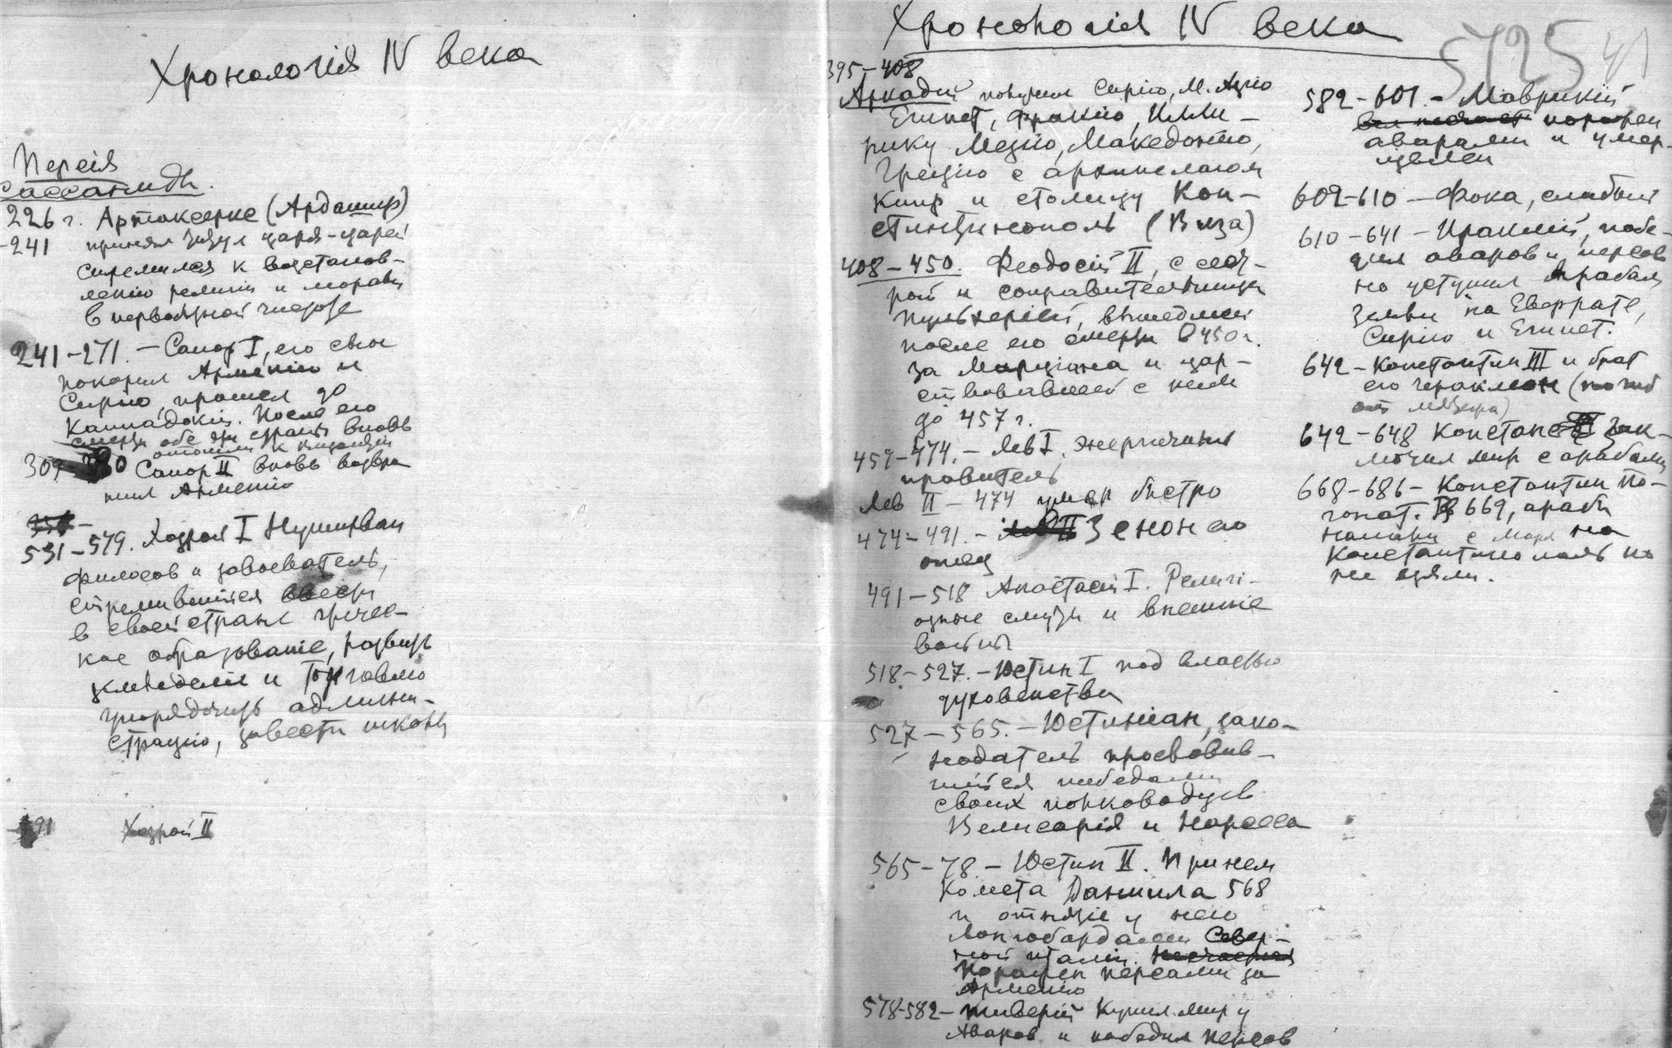 Хронологія IV века
Персія
Сассаниды.
226 г. Артаксеркс (Ардашир)
-241 принял титул царя-царей
стремился к возстанов-
ленію религіи и морали
в первобытной чистоте
241-271. - Сапор I, его сын
покорил Арменію и
Сирію, прошел до
Каппадокіи. После его
смерти обе эти страны вновь
отошли к Византіи
309 Сапор II вновь возвра
тил Арменію
531-579. Хозрой I Нуширван
философ и завоеватель,
стремившійся ввести
в своей стране гречес-
кое образованіе, развить
земледеліе и торговлю
упорядочить админи-
страцію, завести школы
91 Хозрой II
Хронологія IV века
5725
395-408
Аркадій получил Сирію, М. Азію
Египет, Фракію, Илли-
рику Мезію, Македонію,
Грецію с архипелагом
Кипр и столицу Кон-
стантинополь
408-450. Феодосій II, с сест-
рой и соправительницей
Пульхеріей, вышедшей
после его смерти в 450 г.
за Марціана и цар-
ствовавшей с ним
до 457 г.
457-474. - Лев I. энергичный
правитель
Лев II - 474 умер быстро
474-491. - Зенон его
отец
491-518 Анастасій I. Религі-
озные смуты и внешніе
войны
518-527. - Юстин I под властью
духовенства
527-565. - Юстиніан, зако-
нодатель прославив-
шійся победами
своих полководцев
Велисарія и Нарсеса
565-78. - Юстин II. При нем
комета Даниила 568
и отнятіе у него
Лонгобардами Север-
ной Италіи.
Поражен персами за
Арменію
578-582 - Тиверій Купил мир у
Аваров и победил персов
582-601. - Маврикій
поражен
аварами и умер-
щвлен
602-610 - Фока, слабый
610-641 - Ираклій, побе-
дил аваров и персов
но уступил арабам
земли на Евфрате,
Сирію и Египет.
642 - Константин III и брат
его Гераклеон (погиб
от
642-648 Констанс зак-
лючил мир с арабами
668-686 - Константин По-
гонат. В 669, арабы
напали с моря на
Константинополь но
не взяли.